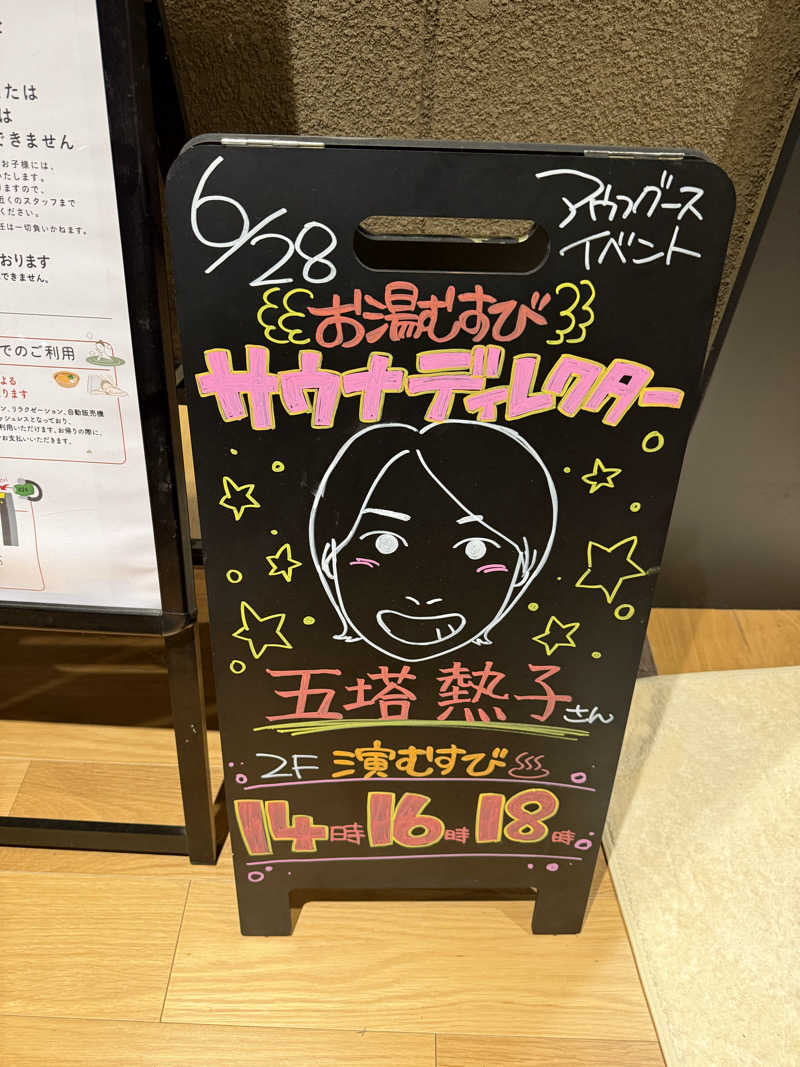 たは
は
できません
お子様には、
いたします。
りますので、
近くのスタッフまで
ください。
任は一切負いかねます。
おります
できません。
でのご利用
よる
ります
ン、リラクゼーション、自動販売機
ッシュレスとなっており、
利用いただけます。お帰りの際に、
お支払いいただきます。
6/28
アウフグース
イベント
お湯むすび
サウナディレクター
五塔 熱子さん
2F 演むすび
14時 16時 18時